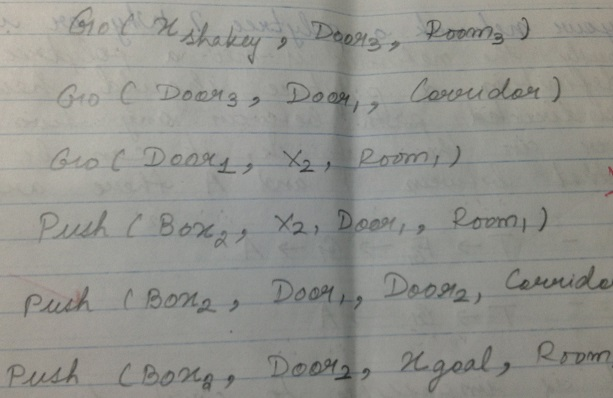 Go ( x shakey , Door3 , Room3 )
Go ( Door3 , Door1 , Corridor )
Go ( Door1 , X2 , Room1 )
Push ( Box2 , X2 , Door1 , Room1 )
Push ( Box2 , Door1 , Door2 , Corrido
Push ( Box2 , Door2 , xgoal , Room